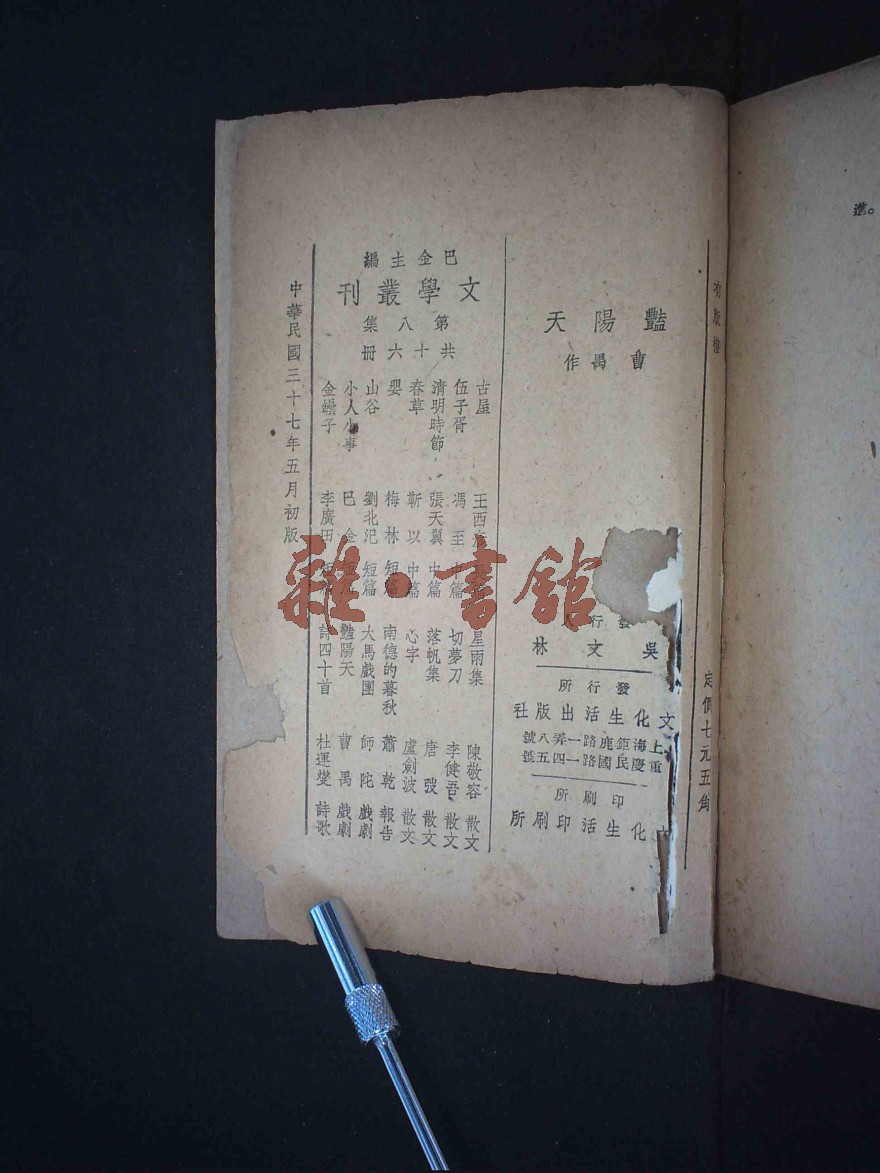 進。
有版權
定價七元五角
豔陽天
曹禺作
發行人
吳文林
發行所
文化生活出版社
上海鉅鹿路一弄八號
重慶民國路一四五號
印刷所
文化生活印刷所
巴金主編
文學叢刊
第八集
共十六冊
古屋 王西
伍子胥 馮至 中篇
清明時節 張天翼 中篇
春草 靳以 中篇
嬰 梅林 短篇
山谷 劉北汜 短篇
小人小事 巴金
金罎子 李廣田 短篇
星雨集 陳敬容 散文
切夢刀 李健吾 散文
落帆集 唐弢 散文
心字 盧劍波 散文
南德的暮秋 蕭乾 報告
大馬戲團 師陀 戲劇
豔陽天 曹禺 戲劇
詩四十首 杜運燮 詩歌
中華民國三十七年五月初版
雜·書館